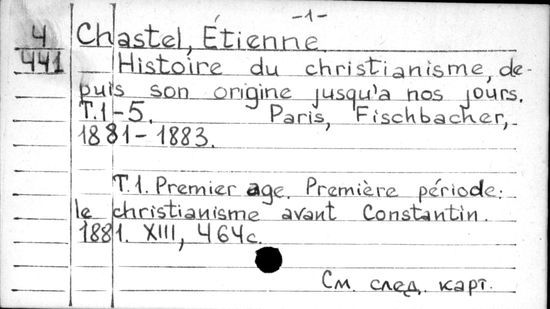 -1-
4 Chastel, Étienne
441 Histoire du christianisme, de-
puis son origine jusqu'a nos jours.
T.1-5. Paris, Fischbacher,
1881-1883.
T.1. Premier age. Première période:
le christianisme avant Constantin.
1881. XIII, 464c.
См. след. карт.